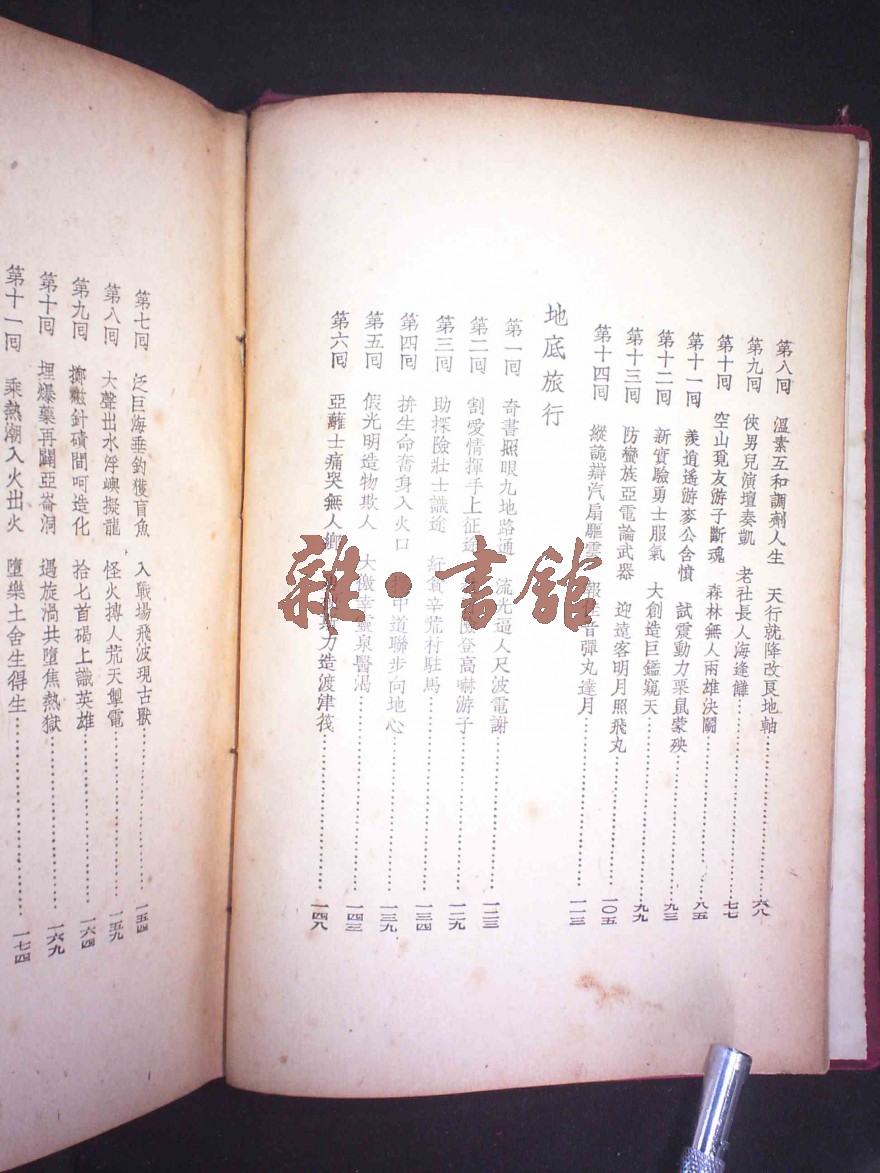 第八回 溫素互和調劑人生 天行就降改良地軸 六八
第九回 俠男兒演壇奏凱 老社長人海逢讎 七七
第十回 空山覓友游子斷魂 森林無人兩雄決鬭 八五
第十一回 羨逍遙游麥公含憤 試震動力栗鼠蒙殃 九三
第十二回 新實驗勇士服氣 大創造巨鑑窺天 九九
第十三回 防蠻族亞電論武器 迎遠客明月照飛丸 一〇五
第十四回 縱詭辯汽扇驅雲 報 音彈丸達月 一一三
地底旅行
第一回 奇書照眼九地路通 流光逼人尺波電謝 一二三
第二回 割愛情揮手上征途 險登高嚇游子 一二九
第三回 助探險壯士識途 貪辛荒村駐馬 一三四
第四回 拚生命奮身入火口 中道聯步向地心 一三九
第五回 假光明造物欺人 大徼幸靈泉醫渴 一四三
第六回 亞蘺士痛哭無人鄉 力造渡津筏 一四八
第七回 泛巨海垂釣獲盲魚 入戰場飛波現古獸 一五四
第八回 大聲出水浮嶼擬龍 怪火摶人荒天掣電 一五九
第九回 擲磁針碛間呵造化 拾匕首碣上識英雄 一六四
第十回 埋爆藥再闢亞崙洞 遇旋渦共墮焦熱獄 一六九
第十一回 乘熱潮入火出火 墮樂土舍生得生 一七四
雜·書館